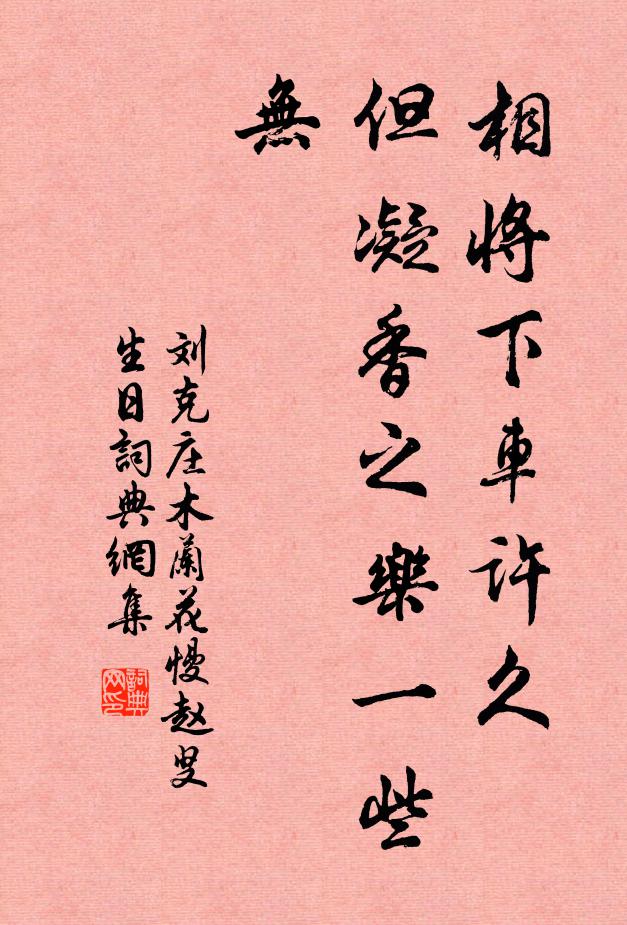 相將下車許久
但凝香之樂一些
無
刘克庄木蘭花慢赵叟
生日詞典網集
詞典
网印